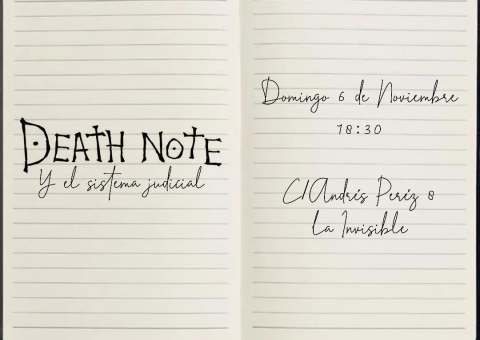 DEATH NOTE
Y el sistema judicial
Domingo 6 de Noviembre
18:30
C/Andrés Peréz 8
La Invisible